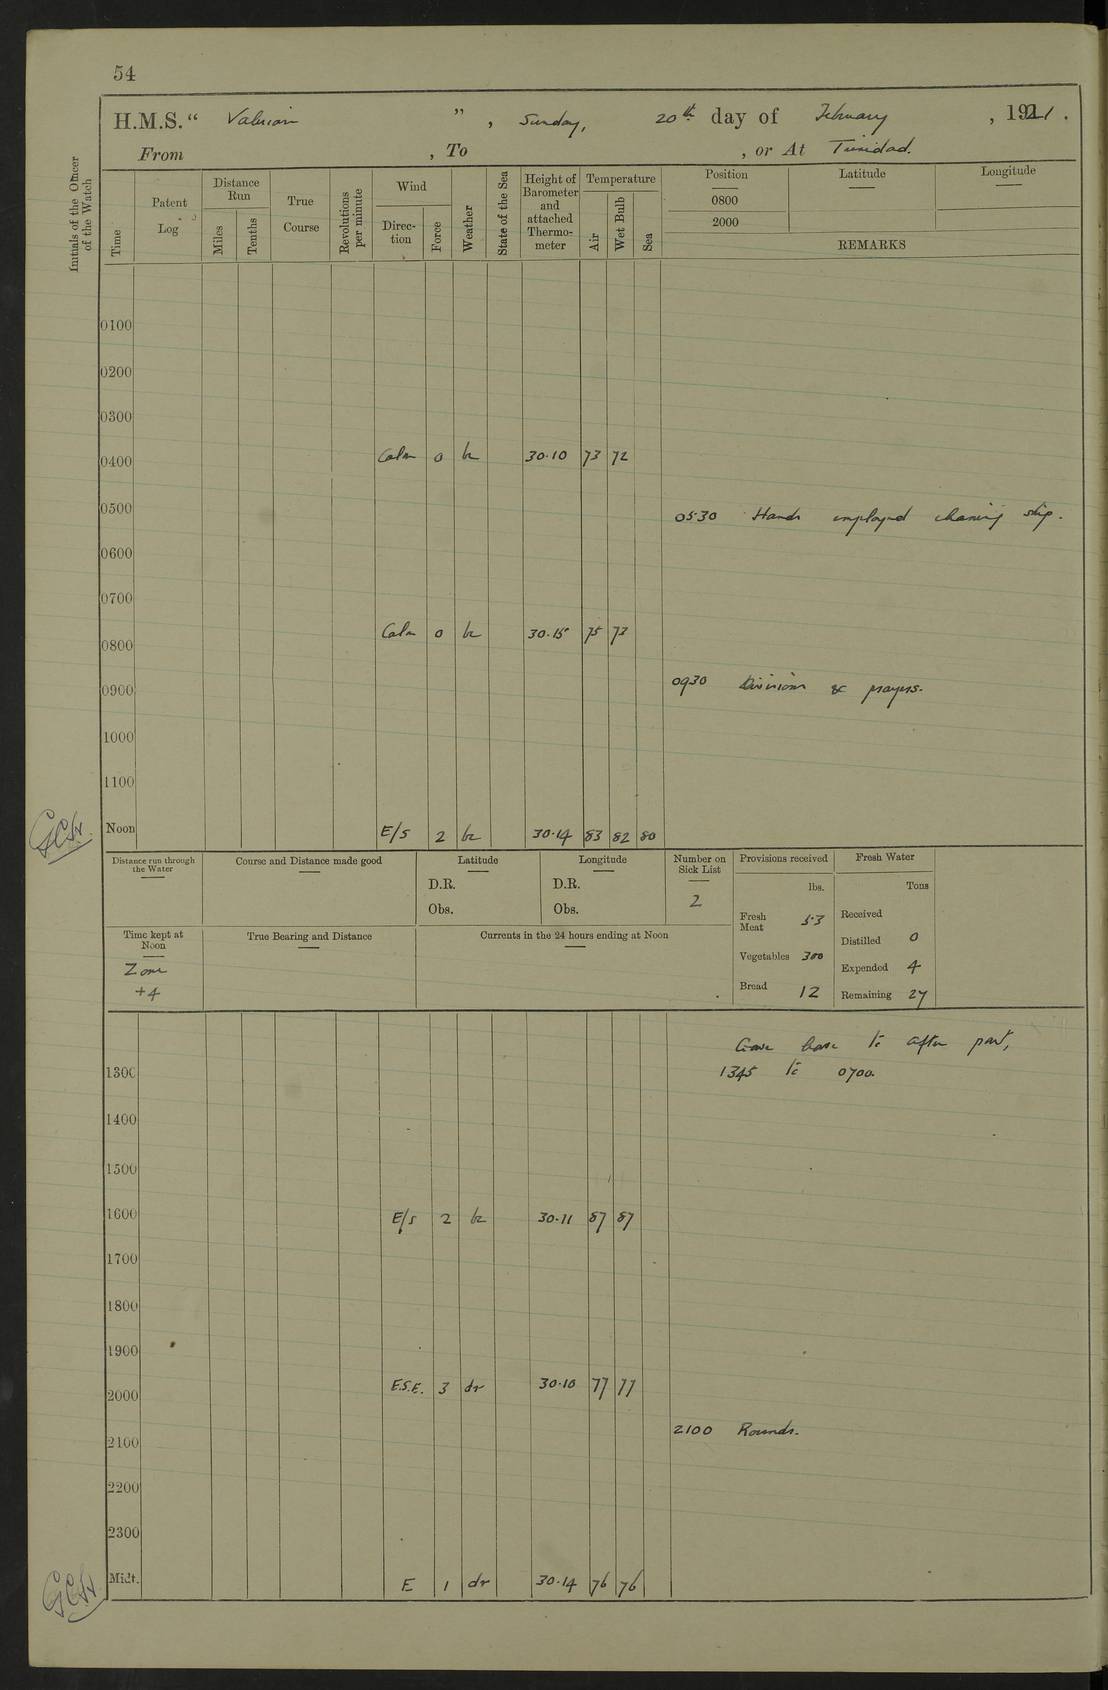 54
H.M.S. “ Valerian ” , Sunday, 20th day of February , 1921 .
From , To , or At Trinidad.
Initials of the Officer of the Watch
Time
Patent Log
Distance Run
Miles
Tenths
True Course
Revolutions per minute
Wind
Direc-tion
Force
Weather
State of the Sea
Height of Barometer and attached Thermo-meter
Temperature
Air
Wet Bulb
Sea
Position Latitude Longitude
0800
2000
REMARKS
0100
0200
0300
0400 Calm 0 bc 30.10 73 72
0500
0530 Hands employed cleaning ship.
0600
0700
0800 Calm 0 bc 30.15 75 73
0900
0930 Divisions & prayers.
1000
1100
Noon E/S 2 bc 30.14 83 82 80
Distance run through the Water
Course and Distance made good
Latitude
D.R.
Obs.
Longitude
D.R.
Obs.
Number on Sick List
2
Provisions received
lbs.
Fresh Meat 53
Vegetables 300
Bread 12
Fresh Water
Tons
Received
Distilled 0
Expended 4
Remaining 27
Time kept at Noon
Zone
+4
True Bearing and Distance
Currents in the 24 hours ending at Noon
Gave leave to after part,
1345 to 0700.
1300
1400
1500
1600 E/S 2 bc 30.11 87 87
1700
1800
1900
2000 E.S.E. 3 dr 30.10 77 77
2100 Rounds.
2100
2200
2300
Midt. E 1 dr 30.14 76 76